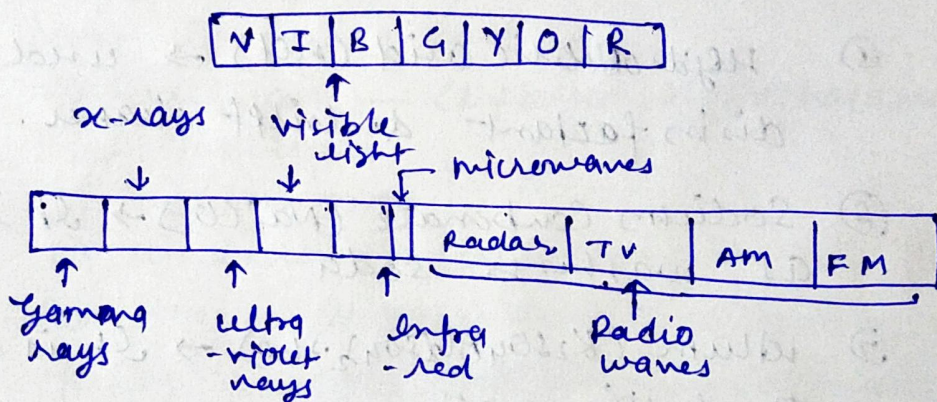 V I B G Y O R
x-rays visible light
microwaves
Radar TV AM FM
Gamma rays ultra-violet rays Infra-red Radio waves